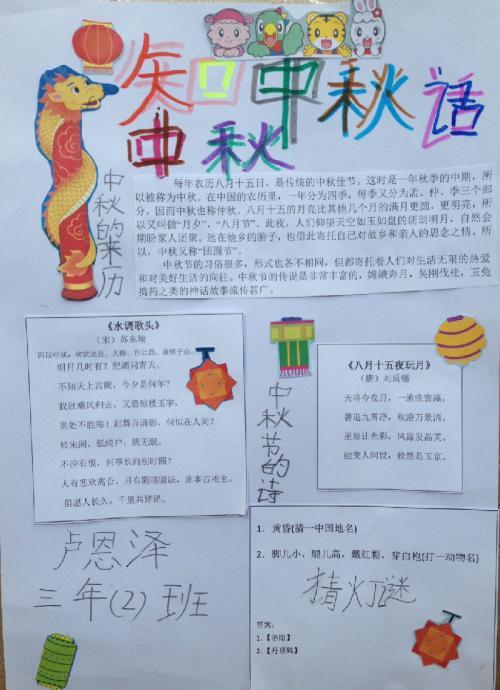 知中秋话
中秋
中秋的来历
每年农历八月十五日，是传统的中秋佳节。这时是一年秋季的中期，所
以被称为中秋。在中国的农历里，一年分为四季，每季又分为孟、仲、季三个部
分，因而中秋也称仲秋。八月十五的月亮比其他几个月的满月更圆，更明亮，所
以又叫做“月夕”，“八月节”。此夜，人们仰望天空如玉如盘的朗朗明月，自然会
期盼家人团聚。远在他乡的游子，也借此寄托自己对故乡和亲人的思念之情。所
以，中秋又称“团圆节”。
中秋节的习俗很多，形式也各不相同，但都寄托着人们对生活无限的热爱
和对美好生活的向往。中秋节的传说是非常丰富的，嫦娥奔月，吴刚伐桂，玉兔
捣药之类的神话故事流传甚广。
《水调歌头》
（宋）苏东坡
丙辰中秋，欢饮达旦，大醉，作此篇，兼怀子由。
明月几时有？把酒问青天。
不知天上宫阙，今夕是何年？
我欲乘风归去，又恐琼楼玉宇，
高处不胜寒！起舞弄清影，何似在人间？
转朱阁，低绮户，照无眠。
不应有恨，何事长向别时圆？
人有悲欢离合，月有阴晴圆缺，此事古难全。
但愿人长久，千里共婵娟。
中秋节的诗
《八月十五夜玩月》
（唐）刘禹锡
天将今夜月，一遍洗寰瀛。
暑退九霄净，秋澄万景清。
星辰让光彩，风露发晶英。
能变人间世，攸然是玉京。
卢恩泽
三年(2)班
1、黄昏(猜一中国地名)
2、脚儿小，腿儿高，戴红帽，穿白袍(打一动物名)
猜灯谜
答案：
1.【洛阳】
2.【丹顶鹤】